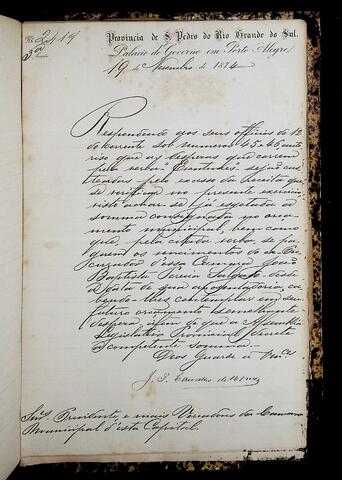 Nº 2419
3ª
Provincia de S. Pedro do Rio Grande do Sul.
Palacio do Governo em Porto Alegre,
19 de Novembro de 1874
Respondendo aos seus officios de 12
do corrente sob numeros 45 e 46, auto
riso que as despezas que correm
pela verba Eventuaes, sejão cus
teadas pelo excesso da receita que
se verificar no presente exercicio
visto achar-se já esgotada a
somma consignada no orça
mento municipal, bem como
que, pela citada verba, se pa
guem os vencimentos do ex-Pro
curador d'essa Camara João
Baptista Pereira Salgado desde
a data de sua aposentadoria, ca
bendo-lhes contemplar em seu
futuro orçamento semelhante
despeza, afim de que a Assemblea
Legislativa Provincial decrete
a competente somma.
Deos Guarde a Vmcês
J. P. Carvalho de Moraes
Snrs. Presidente, e mais Vereadores da Camara
Municipal d'esta Capital.